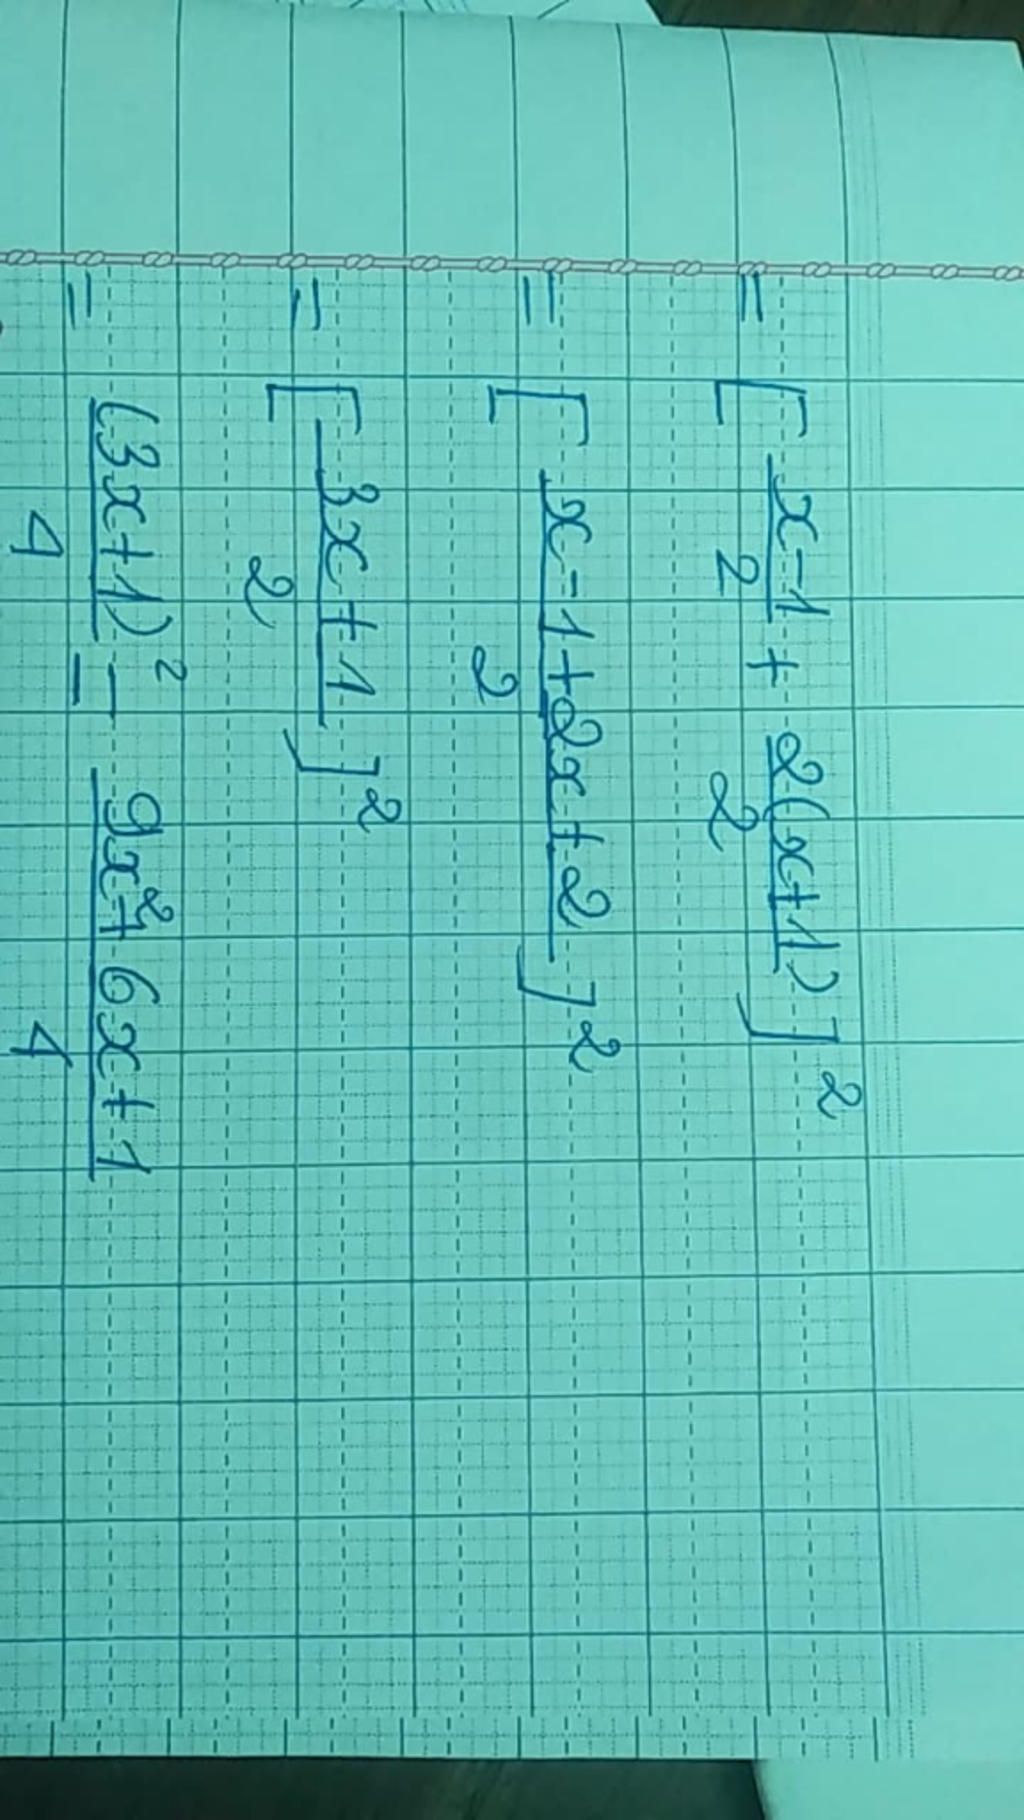 = [ (x-1)/2 + 2(x+1)/2 ]²
= [ (x-1+2x+2)/2 ]²
= [ (3x+1)/2 ]²
= (3x+1)²/4 = (9x²+6x+1)/4